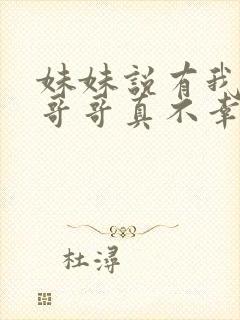 妹妹說有我
哥哥真不幸
杜潯